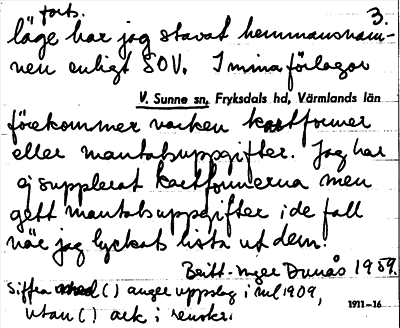 forts. 3.
läge har jag stavat hemmansnam-
nen enligt SOV. I mina förlagor
V. Sunne sn, Fryksdals hd, Värmlands län
förekommer varken kortformer
eller mantalsuppgifter. Jag har
ej supplerat kortformerna men
gett mantalsuppgifter i de fall
när jag lyckats lista ut dem.
Britt-Inger Dunås 1959.
Siffra med ( ) anger uppslag i ml 1909,
utan ( ) ark i renskr. 1911-16